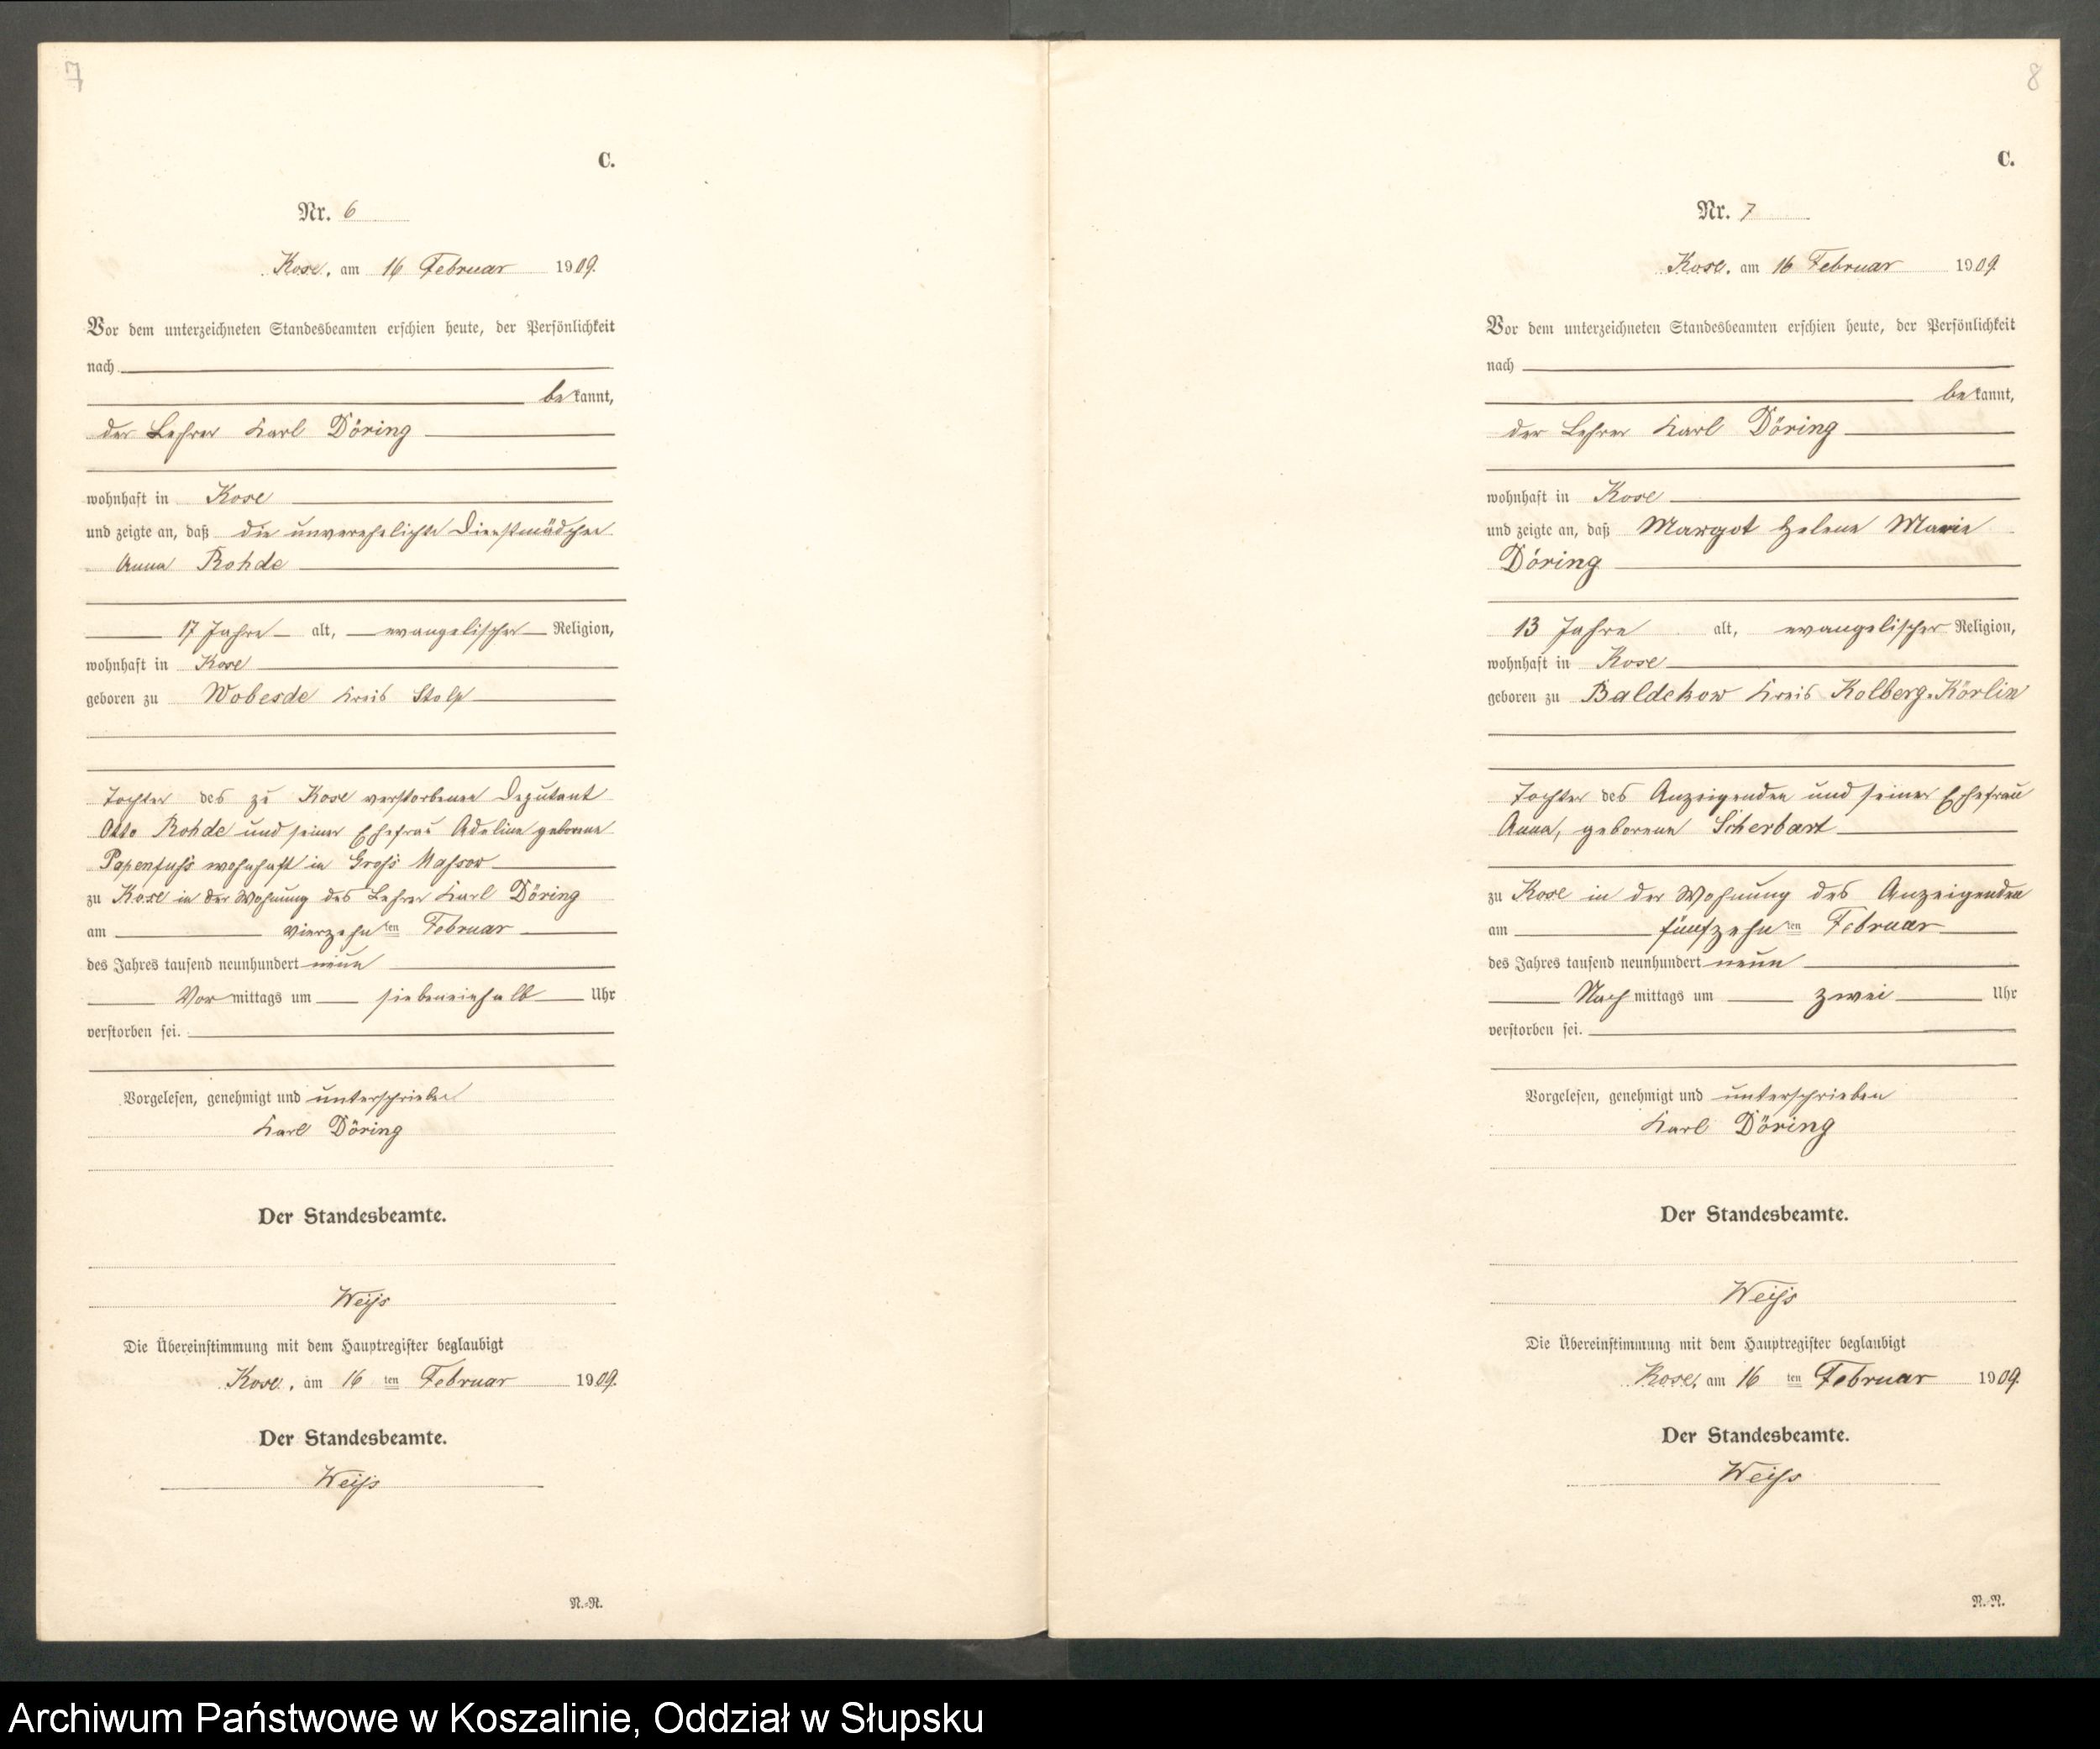 7
C.
Nr. 6
Kose, am 16 Februar 1909.
Vor dem unterzeichneten Standesbeamten erschien heute, der Persönlichkeit
nach
bekannt,
der Lehrer Karl Döring
wohnhaft in Kose
und zeigte an, daß die unverehelichte Dienstmädchen
Anna Rohde
17 Jahre alt, evangelischer Religion,
wohnhaft in Kose
geboren zu Wobesde Kreis Stolp
Tochter des zu Kose verstorbenen Deputant
Otto Rohde und seiner Ehefrau Adeline geborene
Papenfuß wohnhaft in Groß Massow
zu Kose in der Wohnung des Lehrer Karl Döring
am vierzehnten Februar
des Jahres tausend neunhundert neun
Vormittags um siebeneinhalb Uhr
verstorben sei.
Vorgelesen, genehmigt und unterschrieben
Karl Döring
Der Standesbeamte.
Weiß
Die Übereinstimmung mit dem Hauptregister beglaubigt
Kose, am 16 ten Februar 1909.
Der Standesbeamte.
Weiß
N.-R.
8
C.
Nr. 7
Kose, am 16 Februar 1909
Vor dem unterzeichneten Standesbeamten erschien heute, der Persönlichkeit
nach
bekannt,
der Lehrer Karl Döring
wohnhaft in Kose
und zeigte an, daß Margot Helene Marie
Döring
13 Jahre alt, evangelischer Religion,
wohnhaft in Kose
geboren zu Baldekow Kreis Kolberg-Körlin
Tochter des Anzeigenden und seiner Ehefrau
Anna, geborenen Scherbart
zu Kose in der Wohnung des Anzeigenden
am fünfzehnten Februar
des Jahres tausend neunhundert neun
Nachmittags um zwei Uhr
verstorben sei.
Vorgelesen, genehmigt und unterschrieben
Karl Döring
Der Standesbeamte.
Weiß
Die Übereinstimmung mit dem Hauptregister beglaubigt
Kose, am 16 ten Februar 1909.
Der Standesbeamte.
Weiß
N.-R.
Archiwum Państwowe w Koszalinie, Oddział w Słupsku